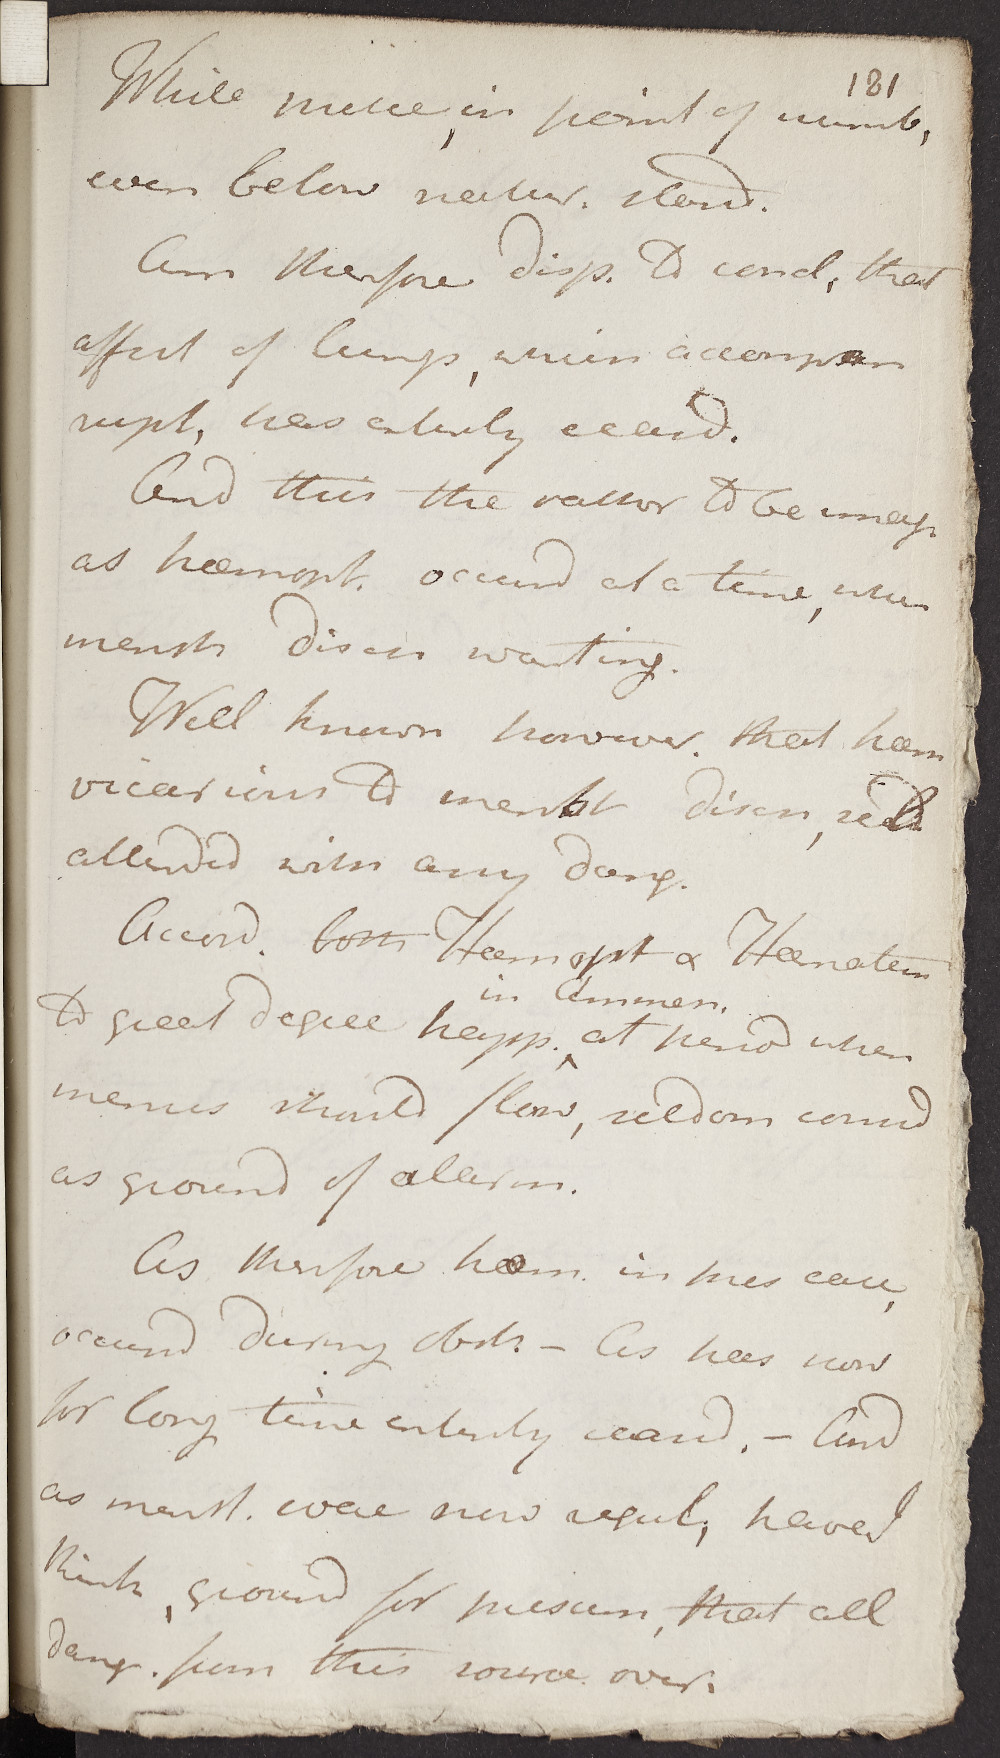 181
While pulse, in point of numb,
even below natur. stand.
Am therefore disp. to concl, that
affect of lungs, which accompan
rupt, has entirely ceasd.
And this the rather to be imag
as haemopt. occurd at a time, when
menstr disch wanting.
Well known however. that haem
vicarious to menst disch, seld
attended with any dang.
Accord. both Haemopt & Haematem
in Common.
to great degree happ. at period when
menses should flow, seldom consid
as ground of alarm.
As therefore haem. in this case,
occurd during obstr. - As has now
for long time entirely ceasd. - And
as menst. were now regul; have I
think, ground for presum, that all
dang. from this source over.